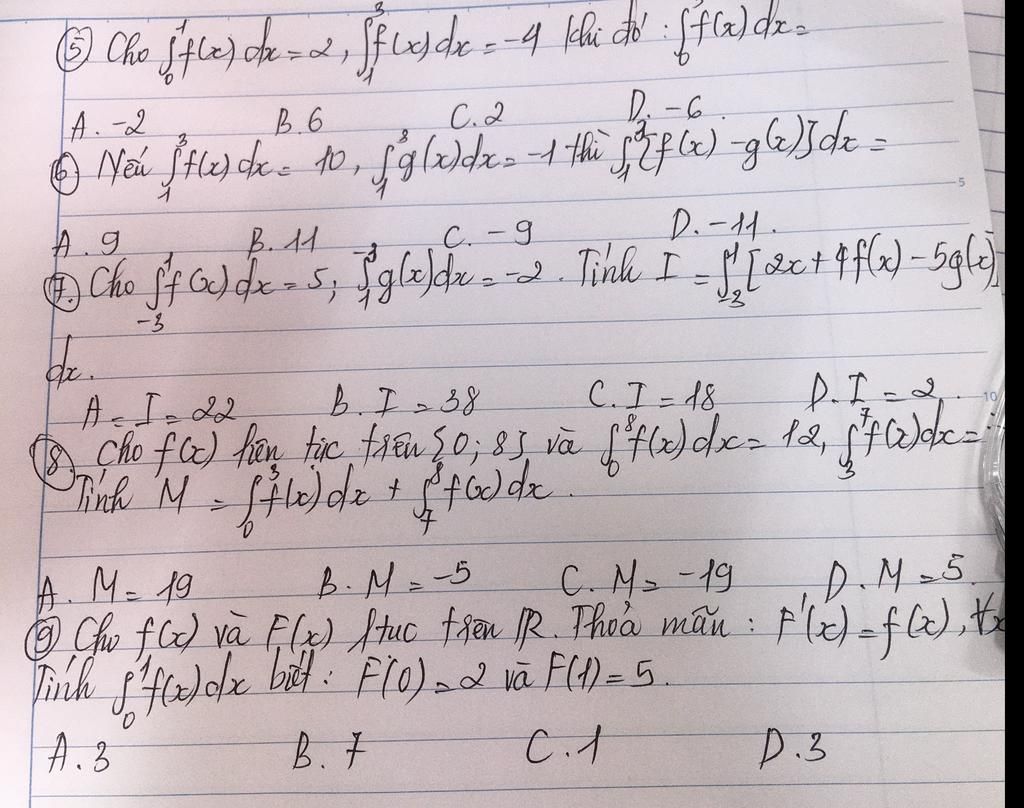 ⑤ Cho ∫₀¹ f(x) dx = 2, ∫₁³ f(x) dx = -4 khi đó : ∫₀ f(x) dx =
A. -2 B. 6 C. 2 D. -6.
⑥ Nếu ∫₁³ f(x) dx = 10, ∫₁³ g(x) dx = -1 thì ∫₁³ [f(x) - g(x)] dx =
5
A. 9 B. 11 C. -9 D. -11.
⑦ Cho ∫₋₃¹ f(x) dx = 5; ∫₁⁻³ g(x) dx = -2. Tính I = ∫₋₃¹ [2x + 4f(x) - 5g(x)]
dx.
A = I = 22 B. I = 38 C. I = 18 D. I = 2.
10
⑧ Cho f(x) liên tục trên [0; 8] và ∫₀⁸ f(x) dx = 12, ∫₃⁷ f(x) dx =
Tính M = ∫₀³ f(x) dx + ∫₇⁸ f(x) dx.
A. M = 19 B. M = -5 C. M = -19 D. M = 5.
⑨ Cho f(x) và F(x) ltuc trên R. Thoả mãn : F'(x) = f(x), ∀x
Tính ∫₀¹ f(x) dx biết : F(0) = 2 và F(1) = 5.
A. 3 B. 7 C. 1 D. 3